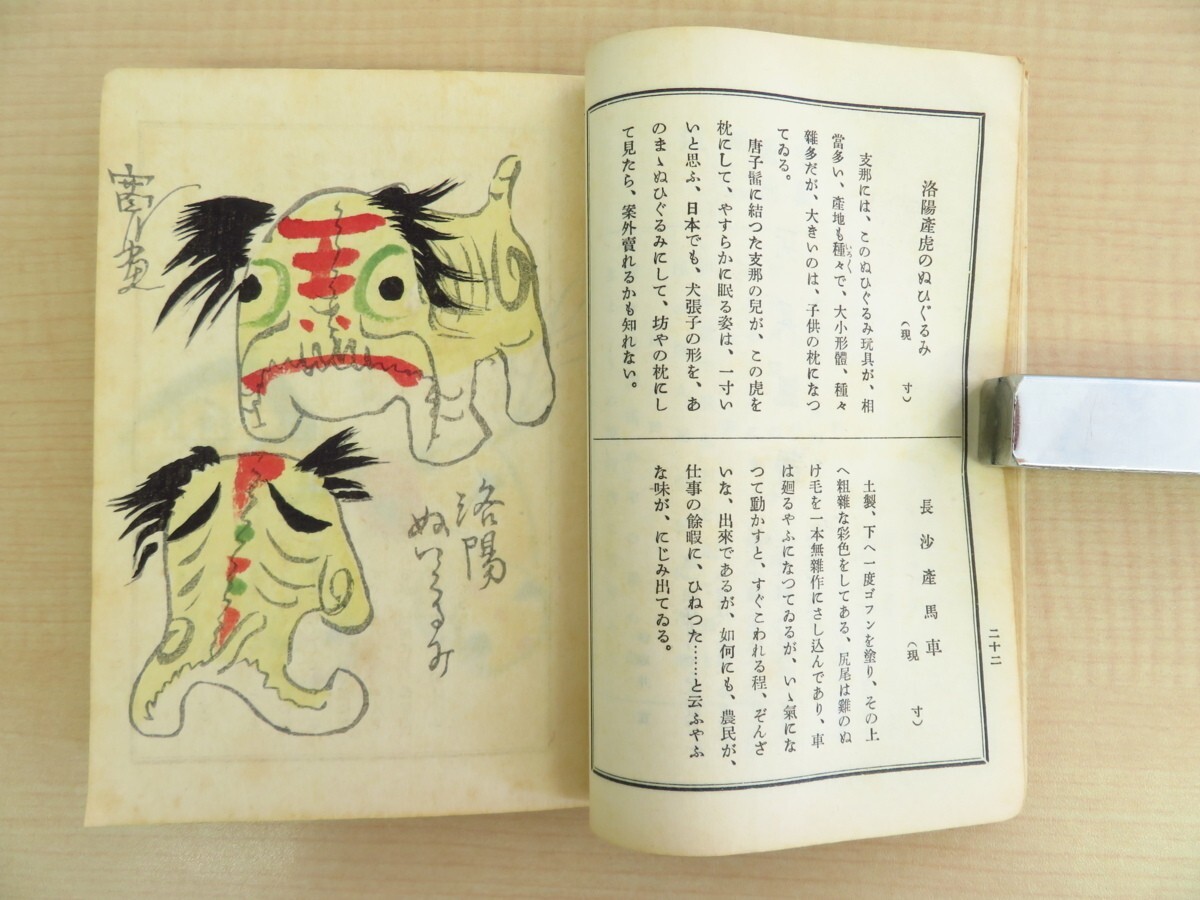 洛陽產虎のぬひぐるみ
(現寸)
支那には、このぬひぐるみ玩具が、相
當多い、產地も種々で、大小形體、種々
いろ〱
雜多だが、大きいのは、子供の枕になつ
てゐる。
唐子髷に結つた支那の兒が、この虎を
枕にして、やすらかに眠る姿は、一寸い
いと思ふ、日本でも、犬張子の形を、あ
のまゝぬひぐるみにして、坊やの枕にし
て見たら、案外賣れるかも知れない。
長沙產馬車
(現寸)
土製、下へ一度ゴフンを塗り、その上
へ粗雜な彩色をしてある、尻尾は雞のぬ
け毛を一本無雜作にさし込んであり、車
は廻るやふになつてゐるが、いゝ氣にな
つて動かすと、すぐこわれる程、ぞんざ
いな、出來であるが、如何にも、農民が、
仕事の餘暇に、ひねつた……と云ふやふ
な味が、にじみ出てゐる。
二十二
洛陽
ぬいぐるみ
画